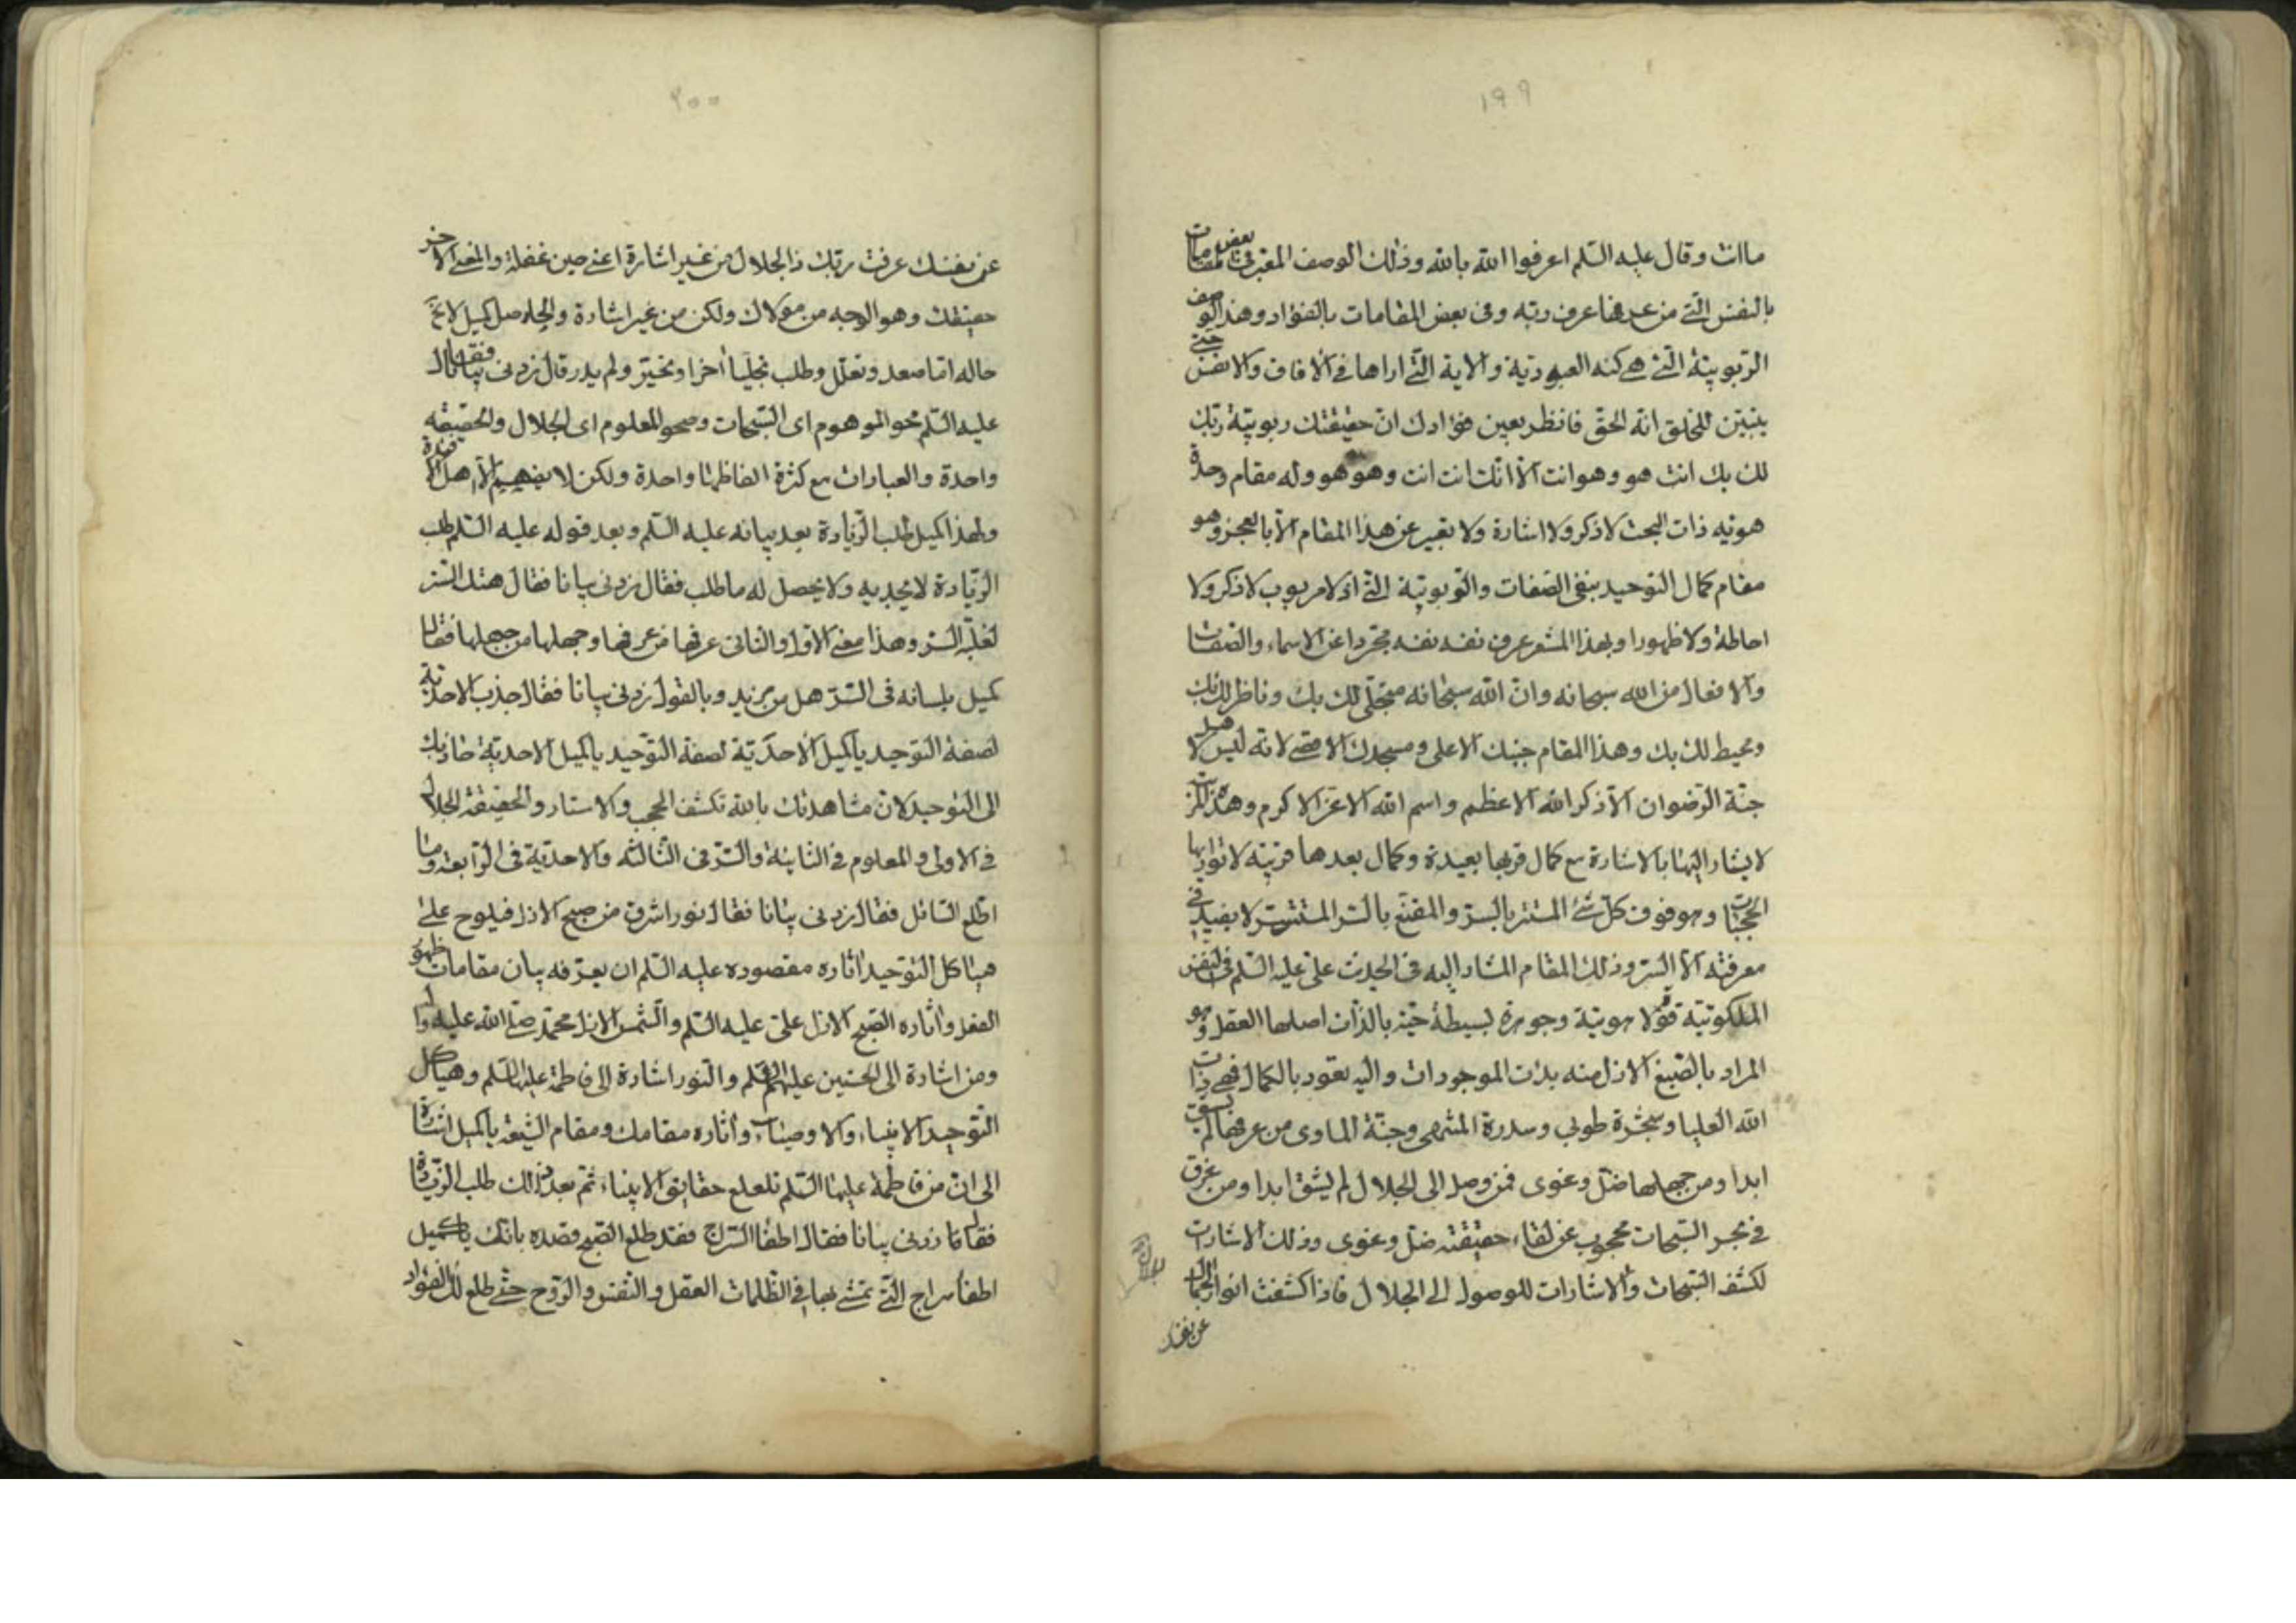 ١٩٩
ما انت وقال عليه السلم اعرفوا الله بالله وذلك الوصف المعبر فى بعض المقامات
بالنفس التى من عرفها عرف ربه وفى بعض المقامات بالفؤاد وهذا الوصف
الربوبية التى هى كنه العبودية والاية التى اراها فى الافاق والانفس حتى
يتبين للخلق انه الحق فانظر بعين فؤادك ان حقيقتك ربوبية ربك
لك بك انت هو وهو انت الا انك انت انت وهو هو وله مقام وحدة
هويه ذات البحث لا ذكر ولا اشارة ولا يعبر عن هذا المقام الا بالعجز وهو
مقام كمال التوحيد بنفى الصفات والربوبية التى اذ لا مربوب لا ذكر ولا
احاطة ولا ظهورا وبهذا المشعر عرف نفسه نفسه مجردا عن الاسماء والصفات
والافعال من الله سبحانه وان الله سبحانه متجلى لك بك وناظر لك بك
ومحيط لك بك وهذا المقام جنبك الاعلى ومسجدك الاقصى لانه ليس لاهل
جنة الرضوان الا ذكر الله الاعظم واسم الله الاعز الاكرم وهذه
لا يشار اليها بالاشارة مع كمال قربها بعيدة وكمال بعدها قريبة لا تواريها
الحجبات وهو فوق كل شئ المستتر بالسر والمقنع بالستر المستتر لا يفيد فى
معرفته الا السر وذلك المقام المشار اليه فى الحديث على عليه السلم فى النفس
الملكوتية قوة لاهوتية وجوهرة بسيطة حية بالذات اصلها العقل وهو
المراد بالصبغ الازل منه بدات الموجودات واليه تعود بالكمال فهى ذات
الله العليا وشجرة طوبى وسدرة المنتهى وجنة الماوى من عرفها لم يشق
ابدا ومن جهلها ضل وغوى فمن وصل الى الجلال لم يشق ابدا ومن غرق
فى بحر السبحات محجوب عن لقاء حقيقته ضل وغوى وذلك الاشارات
لكشف السبحات والاشارات للوصول الى الجلال فاذا كشفت انوار الجمال
عن نفسك
٢٠٠
عن نفسك عرفت ربك ذا الجلال من غير اشارة اعنى حين غفلة والمعنى الاخر
حقيقتك وهو الوجه من مولاك ولكن من غير اشارة والحاصل كميل لا
حاله اما صعد وتعلل وطلب تجليا اخرا وتحير ولم يدر قال زدنى بيانا فقال
عليه السلم محو الموهوم اى السبحات وصحو المعلوم اى الجلال والحقيقه
واحدة والعبارات مع كثرة الفاظها واحدة ولكن لا يفهم الا اهل الافئدة
ولهذا كميل طلب الزيادة بعد بيانه عليه السلم وبعد قوله عليه السلم طلب
الزيادة لا يجديه ولا يحصل له ما طلب فقال زدنى بيانا فقال هتك الستر
لغلبة السر وهذا معنى الاول والثانى عرفها من عرفها وجهلها من جهلها فقال
كميل بلسانه فى السر هل من مزيد وبالقول زدنى بيانا فقال جذب الاحدية
لصفة التوحيد يا كميل الاحدية لصفة التوحيد يا كميل الاحدية جاذبك
الى التوحيد لان مشاهدتك بالله تكشف الحجب والاستار والحقيقة الجلال
فى الاولى والمعلوم فى الثانية والسر فى الثالثه والاحدية فى الرابعة وما
اطلع السائل فقال زدنى بيانا فقال نور اشرق من صبح الازل فيلوح على
هياكل التوحيد اثاره مقصوده عليه السلم ان يعرفه بيان مقامات ظهور
الفعل واثاره الصبح الازل على عليه السلم والشمس الازل محمد صلى الله عليه وآله
ومن اشارة الى الحسنين عليهما السلم والنور اشارة الى فاطمة عليها السلم وهياكل
التوحيد الانبياء والاوصياء واثاره مقامك ومقام الشيعة يا كميل اشارة
الى ان من فاطمة عليها السلم تلعلع حقايق الانبياء ثم بعد ذلك طلب الزيادة
فقال زدنى بيانا فقال اطفأ السراج فقد طلع الصبح قصده بانك يا كميل
اطفأ سراج التى تمشى بها فى الظلمات العقل والنفس والروح حتى طلع لك الفؤاد